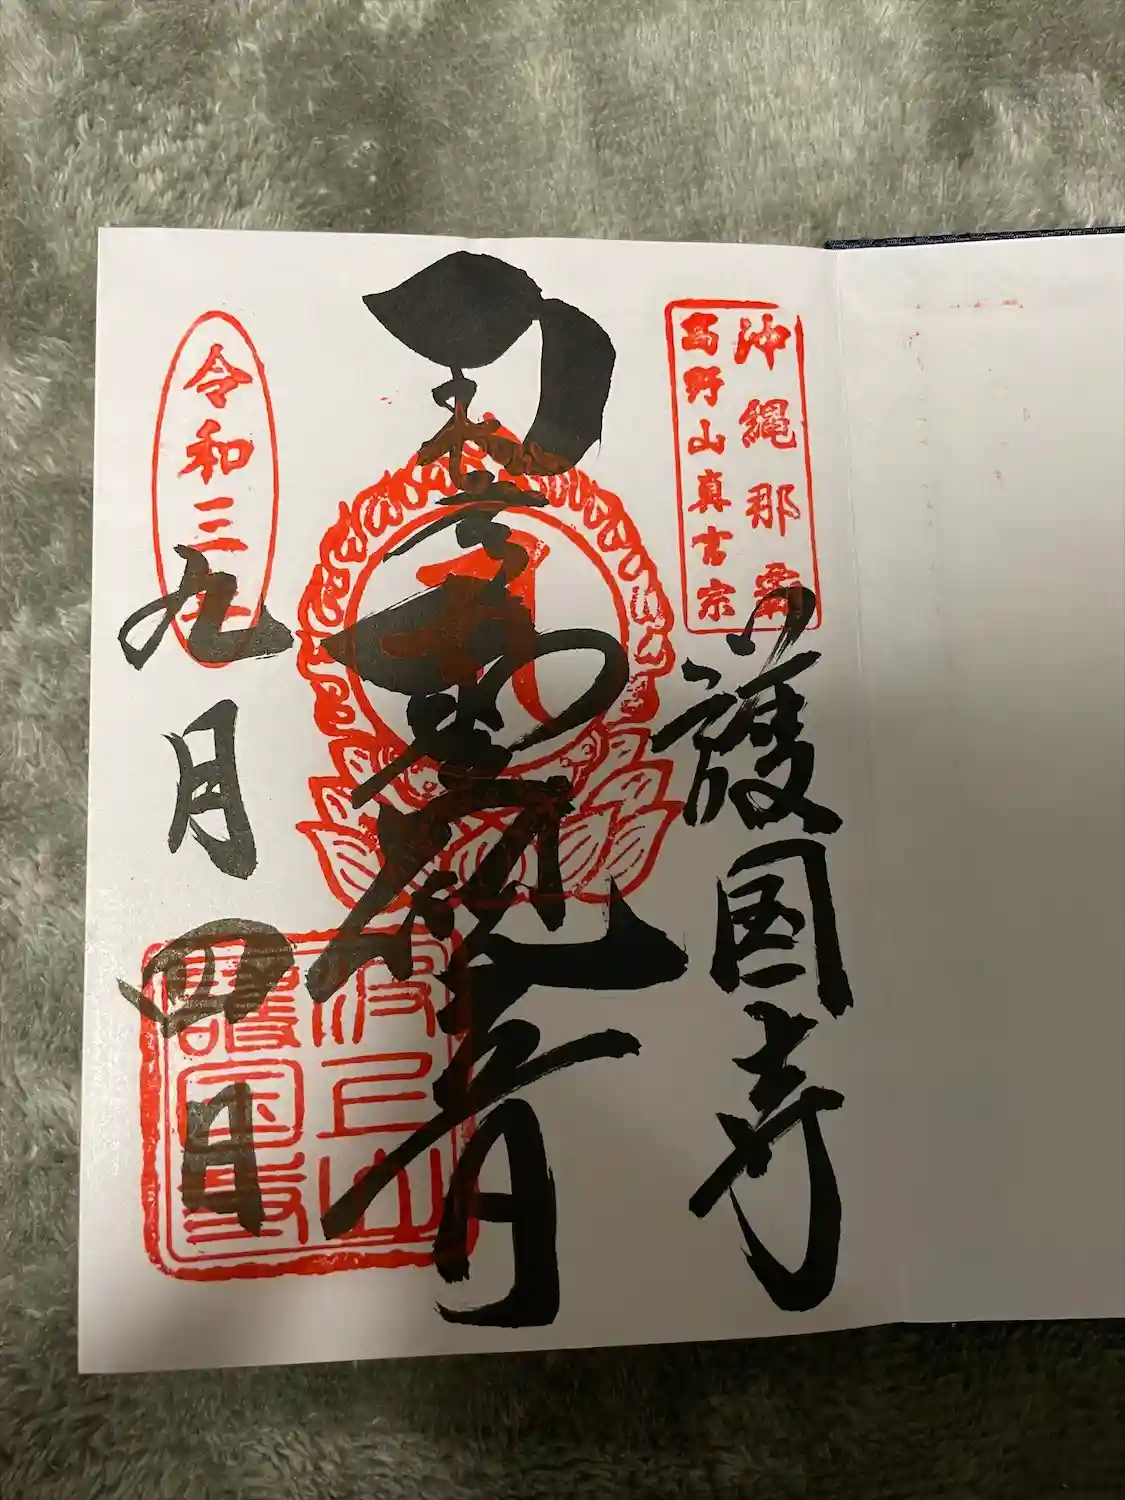 沖縄那覇
高野山真言宗
護国寺
令和三年
九月四日
波上山
護国寺